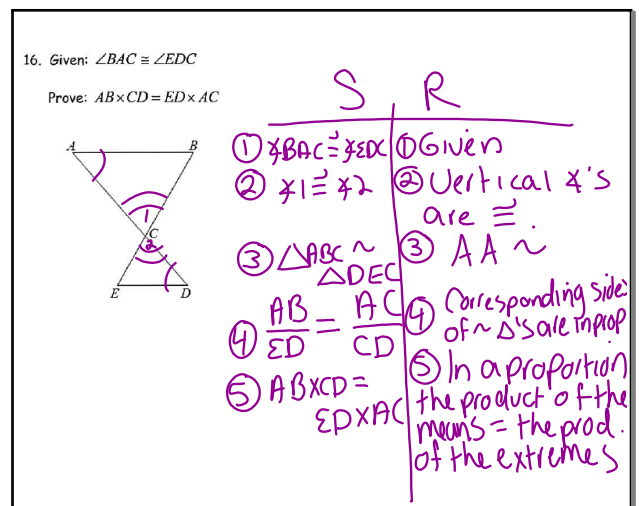 16. Given: ∠BAC ≅ ∠EDC
Prove: AB×CD = ED×AC
S R
① ∡BAC ≅ ∡EDC ① Given
② ∡1 ≅ ∡2 ② Vertical ∡'s
are ≅.
③ △ABC ~ ③ AA ~
△DEC
④ AB/ED = AC/CD ④ Corresponding sides
of ~ △'s are in prop
⑤ AB×CD = ⑤ In a proportion
ED×AC the product of the
means = the prod.
of the extremes
A B
1
C
2
E D